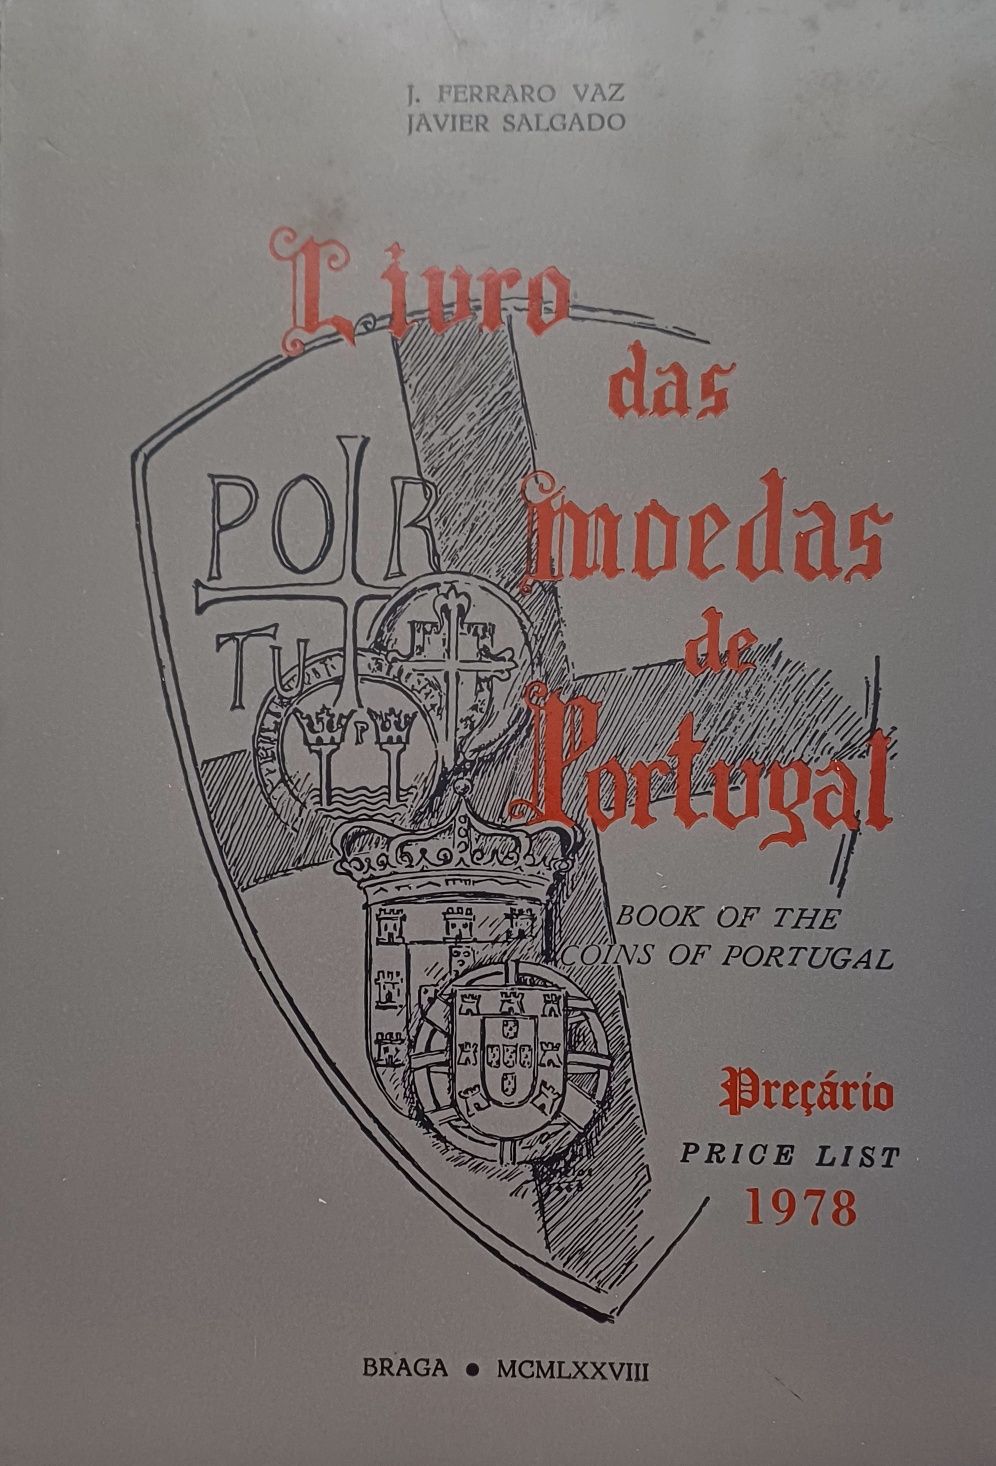 J. FERRARO VAZ
JAVIER SALGADO
Livro
das
moedas
de
Portugal
POR
TU
P
BOOK OF THE
COINS OF PORTUGAL
Preçário
PRICE LIST
1978
BRAGA • MCMLXXVIII